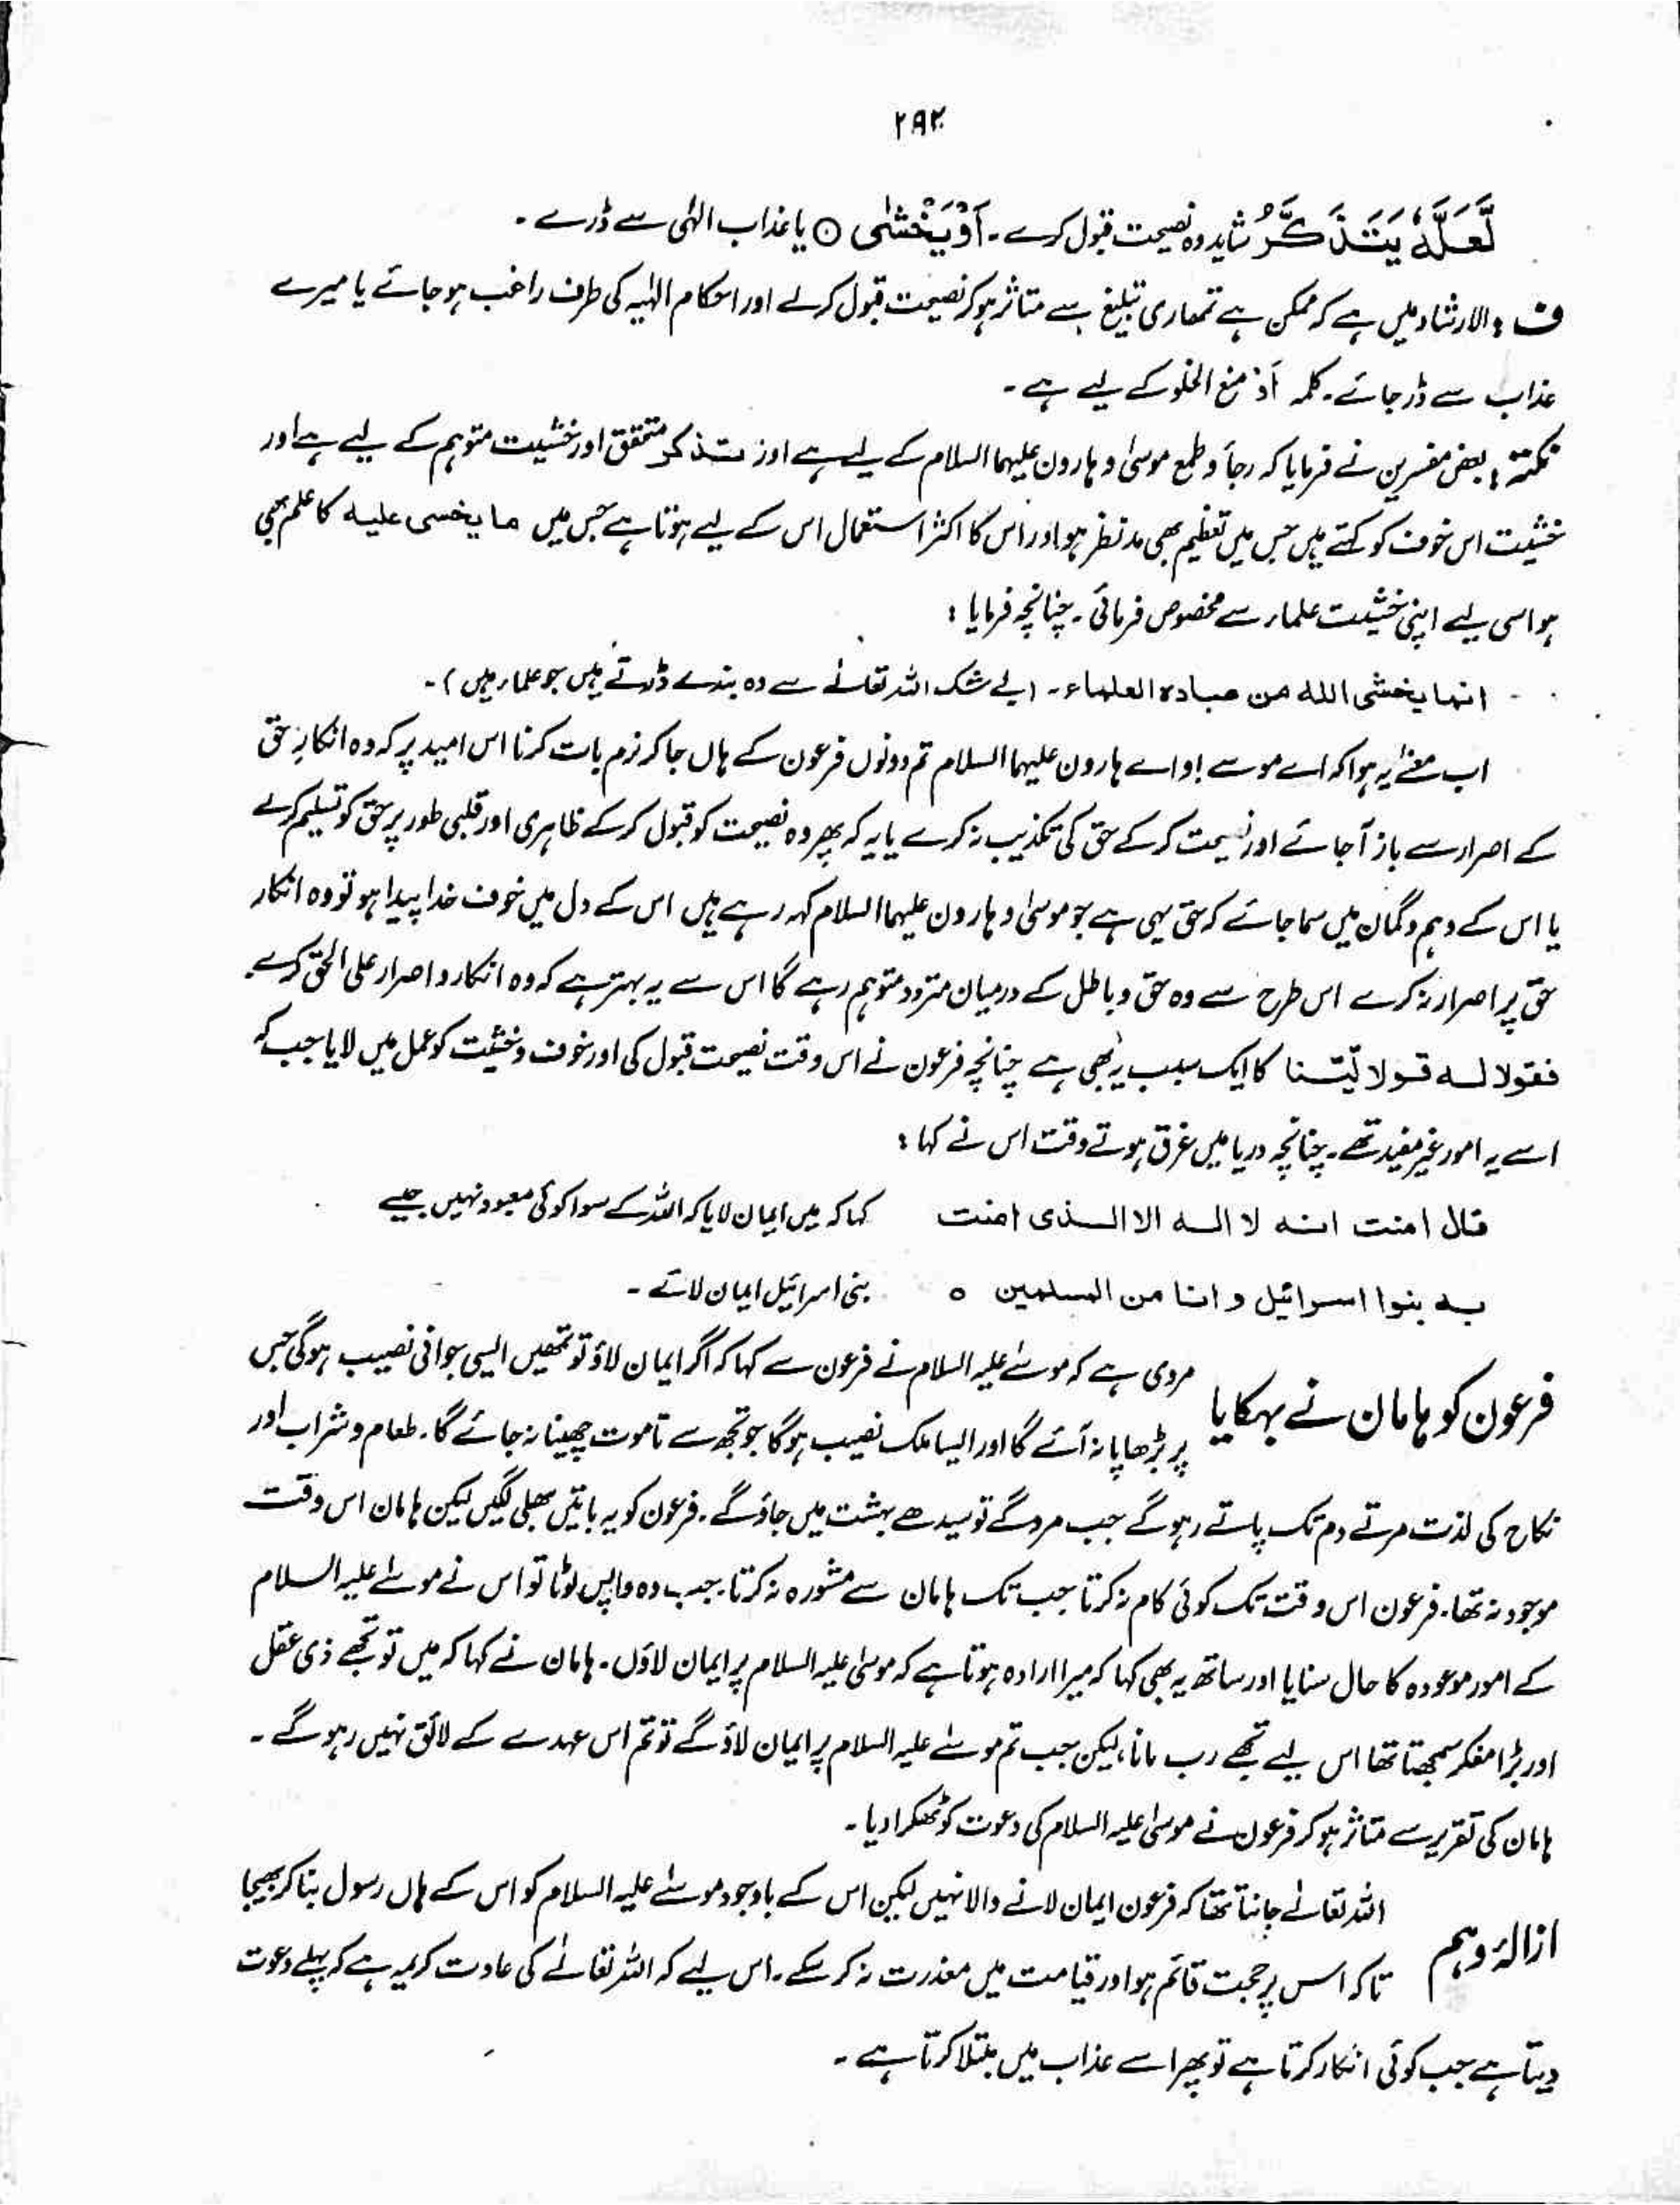 ۲۹۲
لَّعَلَّهٗ يَتَذَكَّرُ شاید وہ نصیحت قبول کرے۔ اَوْ يَخْشٰى ○ یا عذاب الٰہی سے ڈرے ۔
ف : الارشاد میں ہے کہ ممکن ہے تمھاری تبلیغ سے متاثر ہو کر نصیحت قبول کر لے اور احکام الٰہیہ کی طرف راغب ہو جائے یا میرے
عذاب سے ڈر جائے۔ کلمہ اَوْ منع الخلو کے لیے ہے ۔
نکتہ : بعض مفسرین نے فرمایا کہ رجأ و طمع موسیٰ و ہارون علیہما السلام کے لیے ہے اور تذکر متحقق اور خشیت متوہم کے لیے ہے اور
خشیت اس خوف کو کہتے ہیں جس میں تعظیم بھی مدنظر ہو اور اس کا اکثر استعمال اس کے لیے ہوتا ہے جس میں ما یخسی علیہ کا علم بھی
ہو اسی لیے اپنی خشیت علماء سے مخصوص فرمائی ۔ چنانچہ فرمایا :
انما یخشی اللہ من عبادہ العلماء ۔ (بے شک اللہ تعالےٰ سے وہ بندے ڈرتے ہیں جو علماء ہیں) ۔
اب معنےٰ یہ ہوا کہ اے موسے! و اے ہارون علیہما السلام تم دونوں فرعون کے ہاں جا کر نرم بات کرنا اس امید پر کہ وہ انکارِ حق
کے اصرار سے باز آ جائے اور نصیحت کر کے حق کی تکذیب نہ کرے یا یہ کہ پھر وہ نصیحت کو قبول کر کے ظاہری اور قلبی طور پر حق کو تسلیم کرلے
یا اس کے وہم و گمان میں سما جائے کہ حق یہی ہے جو موسیٰ و ہارون علیہما السلام کہہ رہے ہیں اس کے دل میں خوف خدا پیدا ہو تو وہ انکار
حق پر اصرار نہ کرے اس طرح سے وہ حق و باطل کے درمیان متردد متوہم رہے گا اس سے یہ بہتر ہے کہ وہ انکار و اصرار علی الحق کرے۔
فقولا لہ قولا لیّنا کا ایک سبب یہ بھی ہے چنانچہ فرعون نے اس وقت نصیحت قبول کی اور خوف و خشیت کو عمل میں لایا جب کہ
اسے یہ امور غیر مفید تھے۔ چنانچہ دریا میں غرق ہوتے وقت اس نے کہا :
قال امنت انہ لا الہ الا الذی امنت کہا کہ میں ایمان لایا کہ اللہ کے سوا کوئی معبود نہیں جیسے
بہ بنوا اسرائیل و انا من المسلمین ○ بنی اسرائیل ایمان لائے ۔
فرعون کو ہامان نے بہکایا مروی ہے کہ موسےٰ علیہ السلام نے فرعون سے کہا کہ اگر ایمان لاؤ تو تمھیں ایسی جوانی نصیب ہو گی جس
پر بڑھاپا نہ آئے گا اور ایسا ملک نصیب ہو گا جو تجھ سے تا موت چھینا نہ جائے گا۔ طعام و شراب اور
نکاح کی لذت مرتے دم تک پاتے رہو گے جب مرو گے تو سیدھے بہشت میں جاؤ گے۔ فرعون کو یہ باتیں بھلی لگیں لیکن ہامان اس وقت
موجود نہ تھا۔ فرعون اس وقت تک کوئی کام نہ کرتا جب تک ہامان سے مشورہ نہ کرتا۔ جب وہ واپس لوٹا تو اس نے موسےٰ علیہ السلام
کے امور موعودہ کا حال سنایا اور ساتھ یہ بھی کہا کہ میرا ارادہ ہوتا ہے کہ موسیٰ علیہ السلام پر ایمان لاؤں۔ ہامان نے کہا کہ میں تو تجھے ذی عقل
اور بڑا مفکر سمجھتا تھا اس لیے تجھے رب مانا، لیکن جب تم موسےٰ علیہ السلام پر ایمان لاؤ گے تو تم اس عہدے کے لائق نہیں رہو گے ۔
ہامان کی تقریر سے متاثر ہو کر فرعون نے موسیٰ علیہ السلام کی دعوت کو ٹھکرا دیا ۔
ازالۂ وہم اللہ تعالےٰ جانتا تھا کہ فرعون ایمان لانے والا نہیں لیکن اس کے باوجود موسےٰ علیہ السلام کو اس کے ہاں رسول بنا کر بھیجا
تاکہ اس پر حجت قائم ہو اور قیامت میں معذرت نہ کر سکے۔ اس لیے کہ اللہ تعالےٰ کی عادت کریمہ ہے کہ پہلے دعوت
دیتا ہے جب کوئی انکار کرتا ہے تو پھر اسے عذاب میں مبتلا کرتا ہے ۔